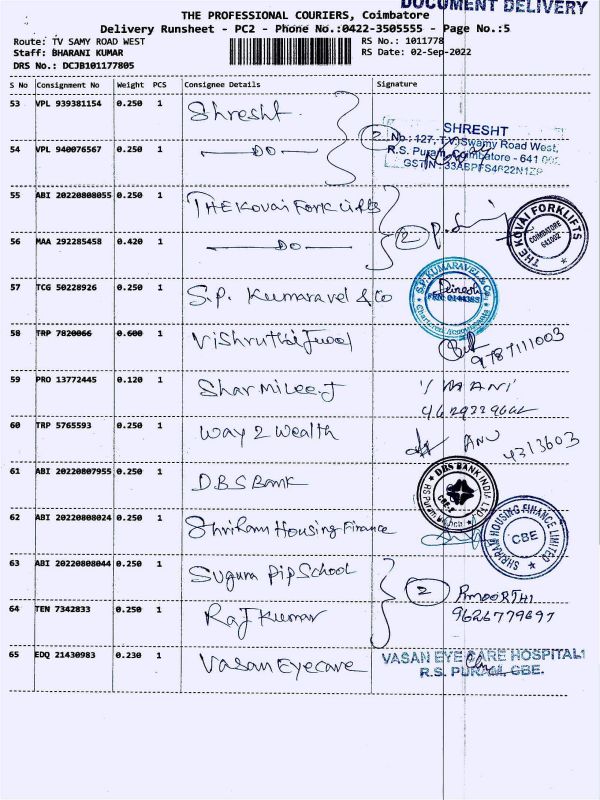 DOCUMENT DELIVERY
THE PROFESSIONAL COURIERS, Coimbatore
Delivery Runsheet - PC2 - Phone No.:0422-3505555 - Page No.:5
Route: TV SAMY ROAD WEST
Staff: BHARANI KUMAR
DRS No.: DCJB101177805
RS No.: 1011778
RS Date: 02-Sep-2022
S No Consignment No Weight PCS Consignee Details Signature
53 VPL 939381154 0.250 1 Shresht
54 VPL 940076567 0.250 1 — DO —
2
SHRESHT
No : 127, T.V. Swamy Road West,
R.S. Puram, Coimbatore - 641 002.
GSTIN : 33ABPFS4622N1ZP
55 ABI 20220808055 0.250 1 THE Kovai Forklifts
56 MAA 292285458 0.420 1 — DO —
2
THE KOVAI FORKLIFTS
COIMBATORE
641002
57 TCG 50228926 0.250 1 S.P. Kumaravel & Co
S.P. KUMARAVEL & Co
Chartered Accountants
Dinesh
58 TRP 7820066 0.600 1 Vishruthi Jwel
9787111003
59 PRO 13772445 0.120 1 Sharmilee.J
MANI
60 TRP 5765593 0.250 1 Way 2 Wealth
ANU
4313603
61 ABI 20220807955 0.250 1 DBS Bank
DBS BANK INDIA Ltd
RS Puram Branch
CBE-2
62 ABI 20220808024 0.250 1 Shriram Housing Finance
SHRIRAM HOUSING FINANCE LIMITED
CBE
63 ABI 20220808044 0.250 1 Suguna Pip School
64 TEN 7342833 0.250 1 Raj Kumar
2
P.MOORTHI
9626779697
65 EDQ 21430983 0.230 1 Vasan Eyecare
VASAN EYE CARE HOSPITAL
R.S. PURAM, CBE.